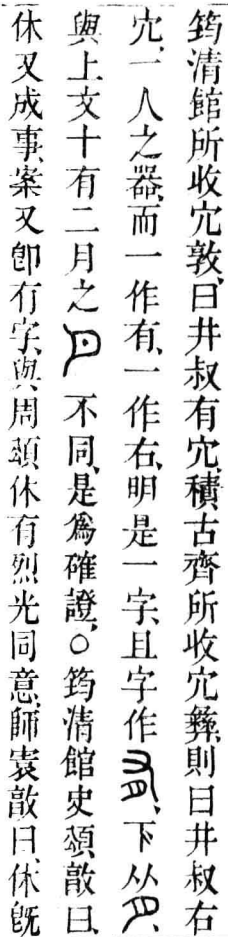 筠清館所收宂敦、曰井叔有宂、積古齊所收宂彝、則曰井叔右
宂、一人之器、而一作有、一作右、明是一字、且字作、下从、
與上文十有二月之不同、是爲確證、○筠清館史頌敔曰、
休又成事、案又卽有字、與周頌休有烈光同意、師㝨敔曰、休旣